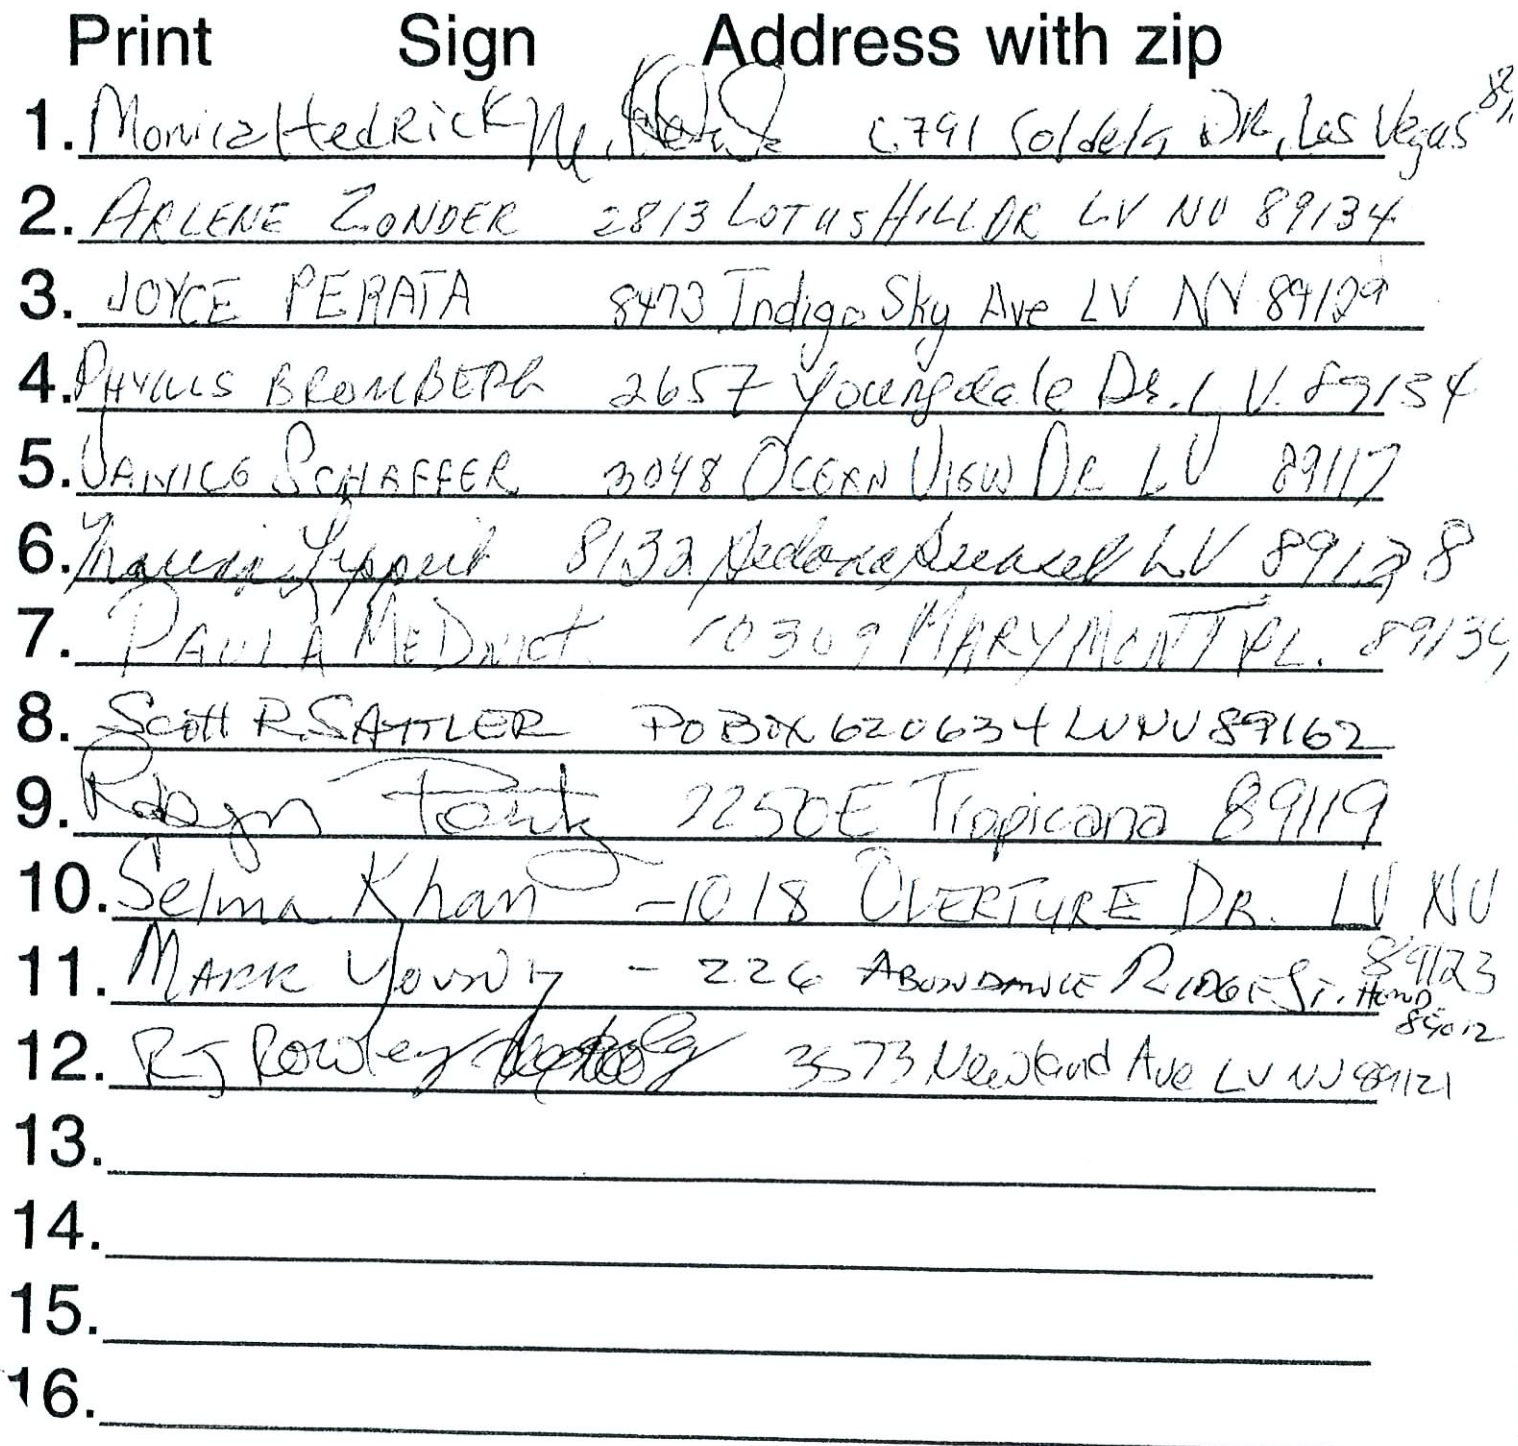 Print Sign Address with zip
1. Monica Hedrick 6791 Soldela DR, Las Vegas
2. ARLENE ZONDER 2813 LOTUS HILL DR LV NV 89134
3. JOYCE PERATA 8473 Indigo Sky Ave LV NV 89129
4. PHYLLIS BROMBERG 2657 Youngdale Dr. L V. 89134
5. JANICE SCHAFFER 3048 OCEAN VIEW DR LV 89117
6. Lippert 8132 Sedona Sunset LV 89128
7. PAULA MEDNICK 10309 MARYMONT PL. 89134
8. Scott R. SATTLER PO BOX 620634 LV NV 89162
9. Robyn 2250 E Tropicana 89119
10. Selma Khan - 1018 OVERTURE DR. LV NV
89123
11. MARK YOUNG - 226 ABUNDANCE RIDGE ST. HEND
89012
12. RJ Rowley 3573 Newland Ave LV NV 89121
13.
14.
15.
16.